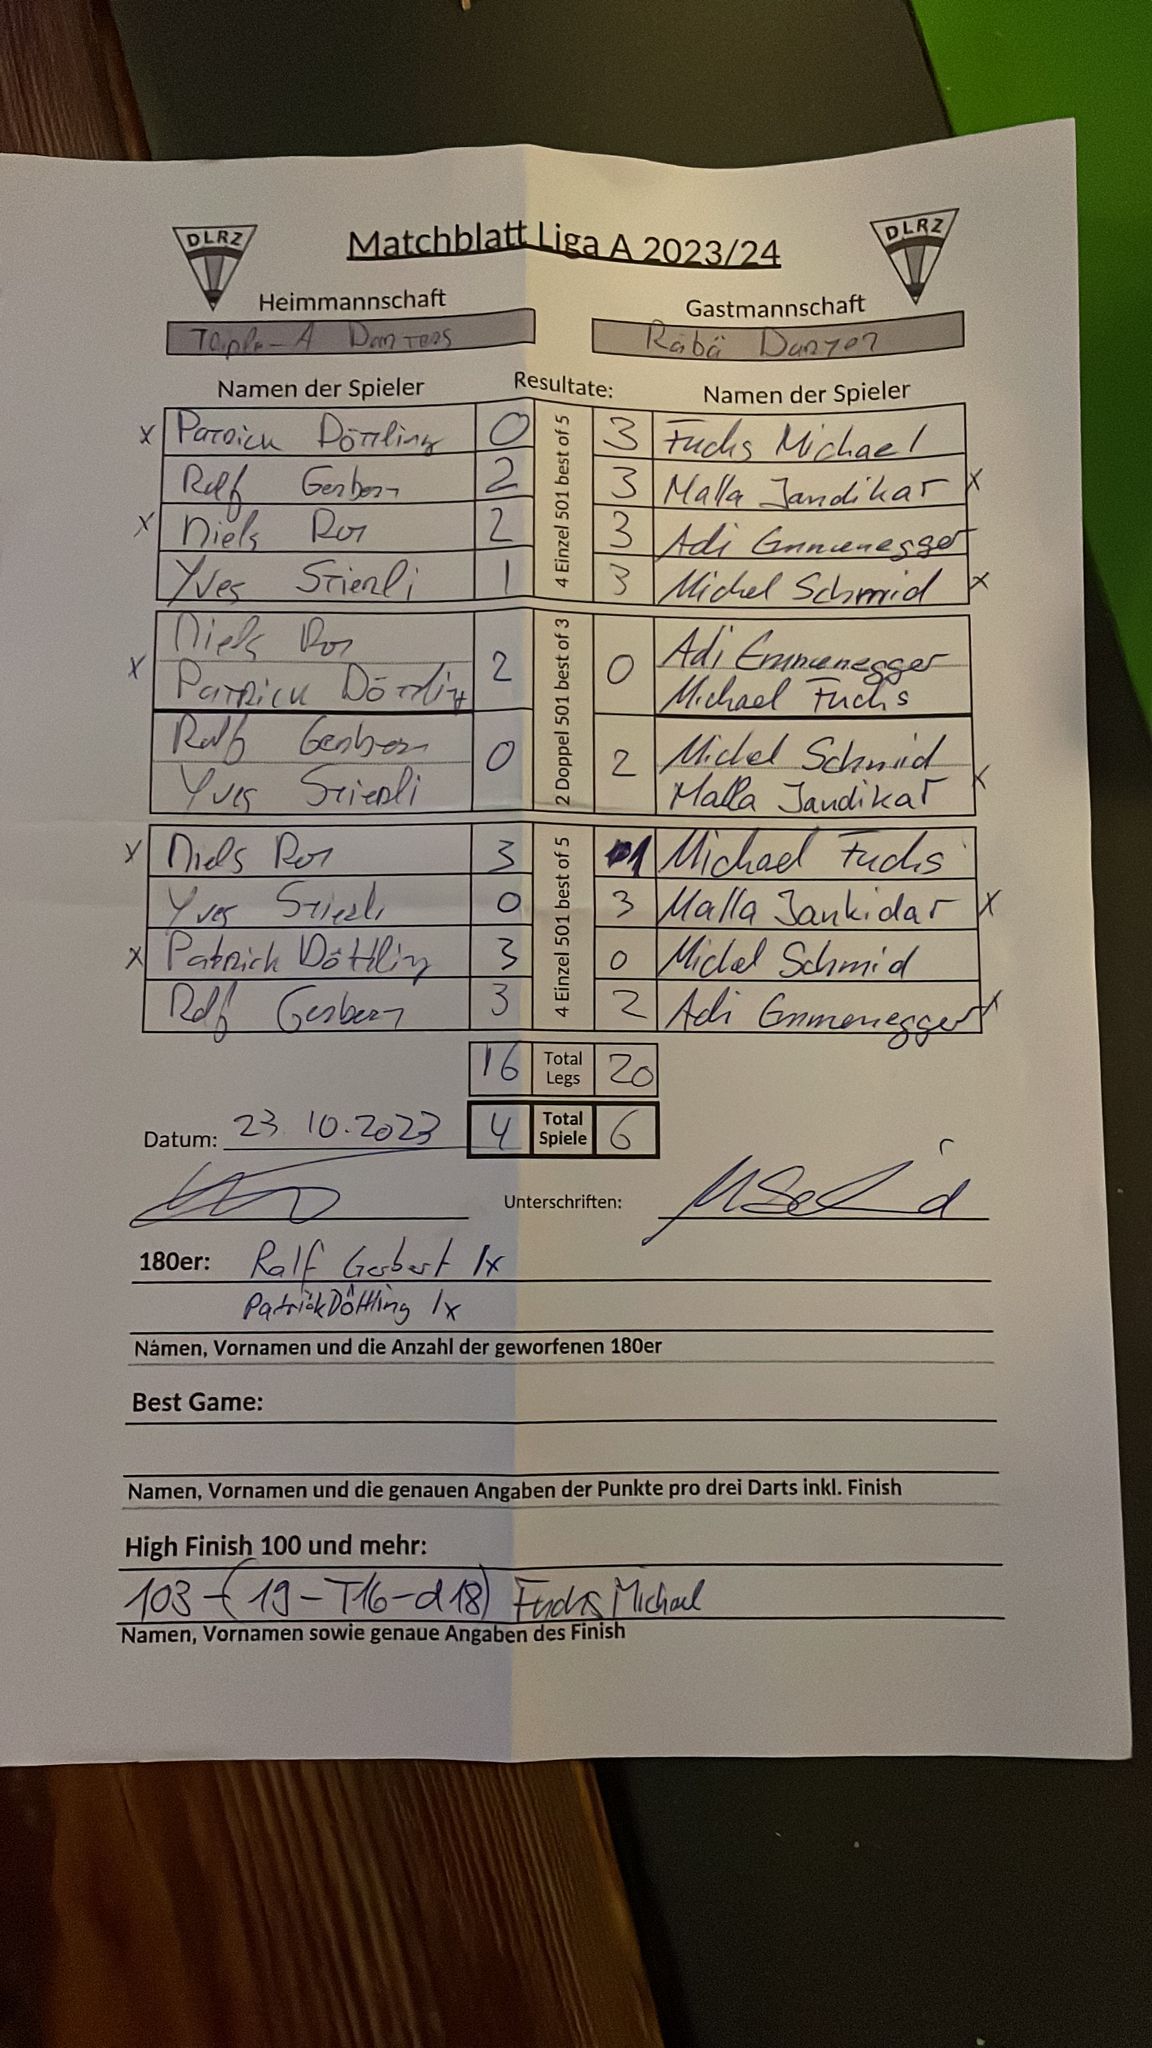 DLRZ Matchblatt Liga A 2023/24 DLRZ
Heimmannschaft Gastmannschaft
Triple-A Danyer
Namen der Spieler Resultate: Namen der Spieler
x Patrick Döttling 0 3 Fuchs Michael
Ralf Gerbert 2 3 Malla Jandikar x
x Niels Ror 2 3 Adi Emmenegger
Yves Stierli 1 3 Michel Schmid x
4 Einzel 501 best of 5
Niels Ror Adi Emmenegger
x 2 0
Patrick Döttling Michael Fuchs
Ralf Gerbert Michel Schmid
0 2 x
Yves Stierli Malla Jandikar
2 Doppel 501 best of 3
x Niels Ror 3 1 Michael Fuchs
Yves Stierli 0 3 Malla Jankidar x
x Patrick Döttling 3 0 Michel Schmid
Ralf Gerbert 3 2 Adi Emmenegger x
4 Einzel 501 best of 5
16 Total Legs 20
Datum: 23.10.2023 4 Total Spiele 6
Unterschriften:
180er: Ralf Gerbert 1x
Patrick Döttling 1x
Namen, Vornamen und die Anzahl der geworfenen 180er
Best Game:
Namen, Vornamen und die genauen Angaben der Punkte pro drei Darts inkl. Finish
High Finish 100 und mehr:
103 - (19 - T16 - d18) Fuchs Michael
Namen, Vornamen sowie genaue Angaben des Finish